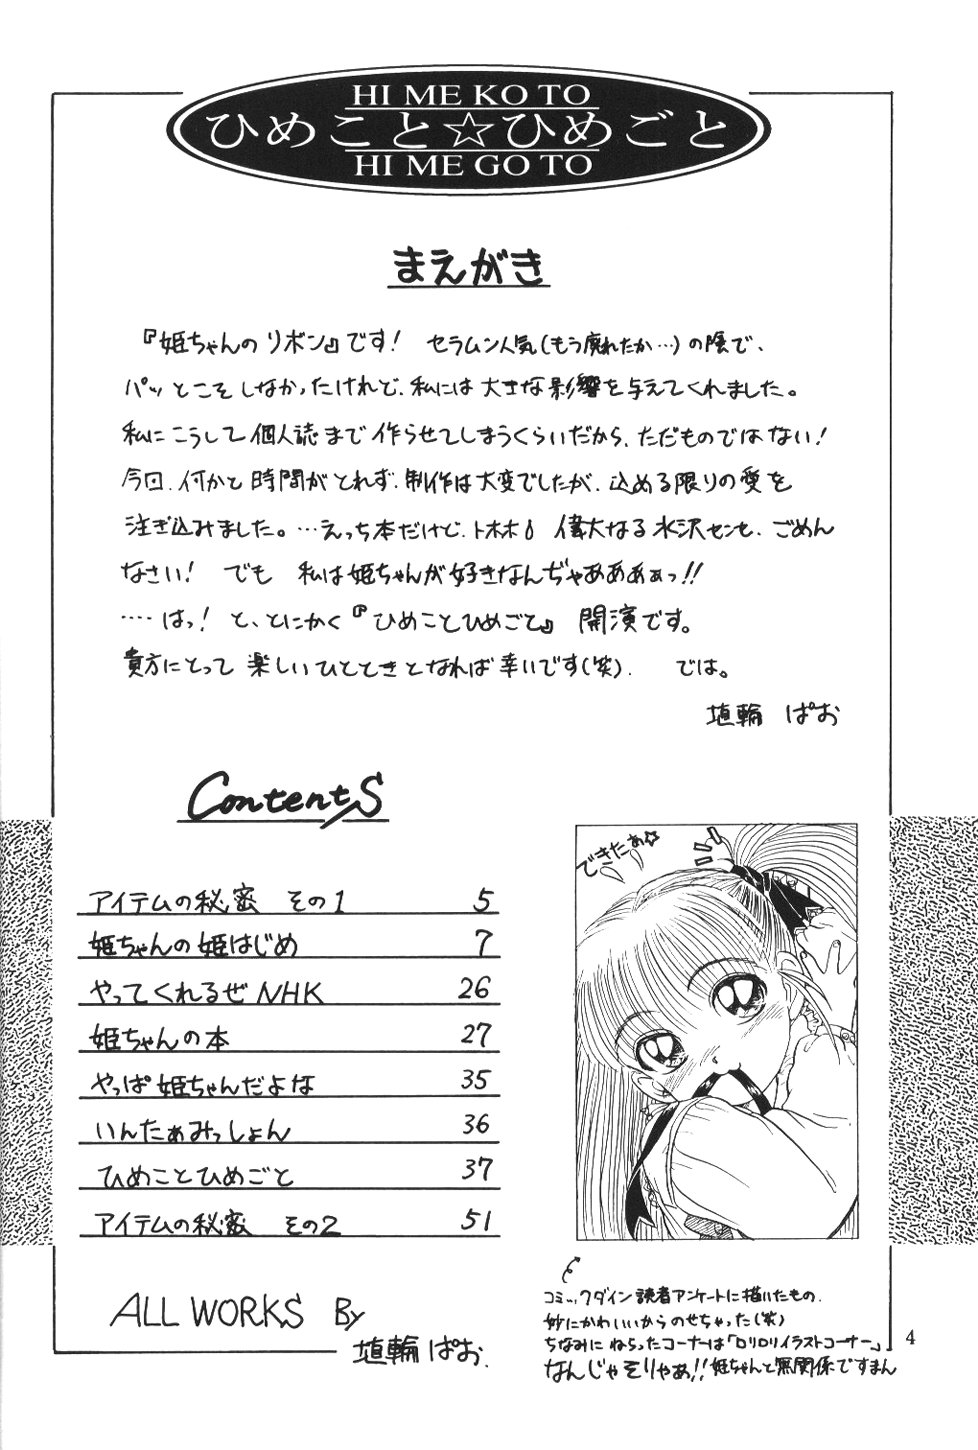 HI ME KO TO
ひめこと☆ひめごと
HI ME GO TO
まえがき
『姫ちゃんのリボン』です! セラムン人気(もう廃れたか…)の陰で、
パッとこそしなかったけれど、私には大きな影響を与えてくれました。
私にこうして個人誌まで作らせてしまうくらいだから、ただものではない!
今回、何かと時間がとれず、制作は大変でしたが、込める限りの愛を
注ぎ込みました。…えっち本だけど、トホホ 偉大なる水沢センセ、ごめん
なさい! でも 私は姫ちゃんが好きなんぢゃあああぁっ!!
‥‥はっ! と、とにかく『ひめことひめごと』 開演です。
貴方にとって楽しいひとときとなれば幸いです(笑). では。
埴輪 ぱお
Contents
アイテムの秘密 その1 5
姫ちゃんの姫はじめ 7
やってくれるぜNHK 26
姫ちゃんの本 27
やっぱ姫ちゃんだよな 35
いんたぁみっしょん 36
ひめことひめごと 37
アイテムの秘密 その2 51
ALL WORKS By
埴輪ぱお.
できたぁ☆
コミックダイン読者アンケートに描いたもの.
妙にかわいいからのせちゃった(笑)
ちなみにねらったコーナーは「ロリロリイラストコーナー」
なんじゃそりゃあ!!姫ちゃんと無関係ですまん
4